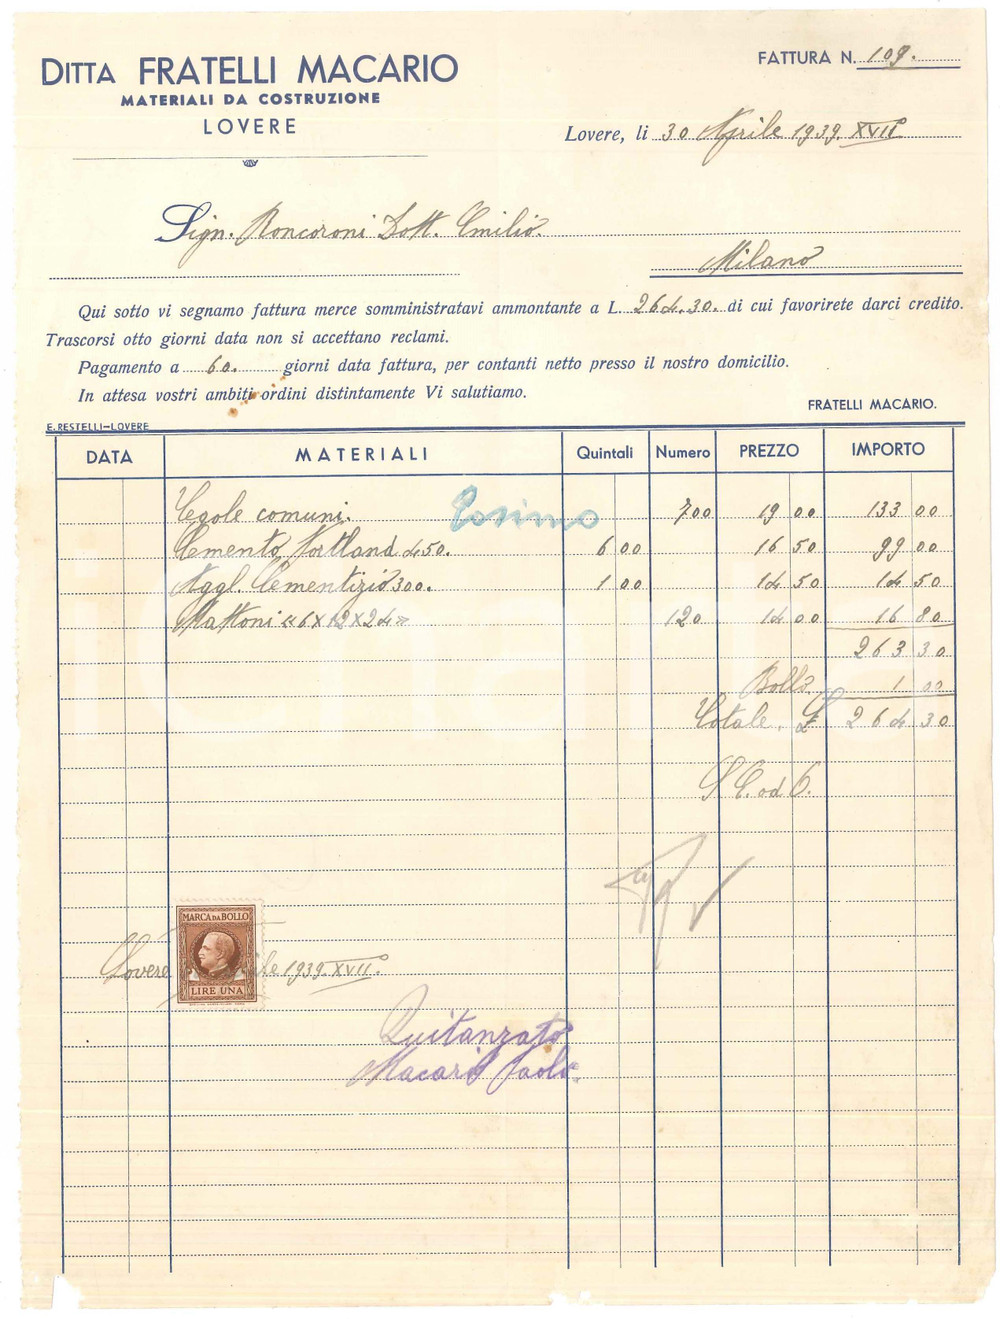 DITTA FRATELLI MACARIO
MATERIALI DA COSTRUZIONE
LOVERE
FATTURA N. 109.
Lovere, li 30 Aprile 1939. XVII°
Sign. Roncoroni Dott. Emilio.
Milano
Qui sotto vi segnamo fattura merce somministratavi ammontante a L. 264.30. di cui favorirete darci credito.
Trascorsi otto giorni data non si accettano reclami.
Pagamento a 60. giorni data fattura, per contanti netto presso il nostro domicilio.
In attesa vostri ambiti ordini distintamente Vi salutiamo.
FRATELLI MACARIO.
E. RESTELLI-LOVERE
DATA MATERIALI Quintali Numero PREZZO IMPORTO
Tegole comuni. Cosimo 700 19 00 133 00
Cemento Portland 450. 6 00 16 50 99 00
Aggl. Cementizio 300. 1 00 14 50 14 50
Mattoni «6x12x24» 120 14 00 16 80
263 30
Bollo 1 00
Totale. £ 264 30
MARCA DA BOLLO
LIRE UNA
Lovere 1939. XVII°.
Quitanzato
Macario Paolo.